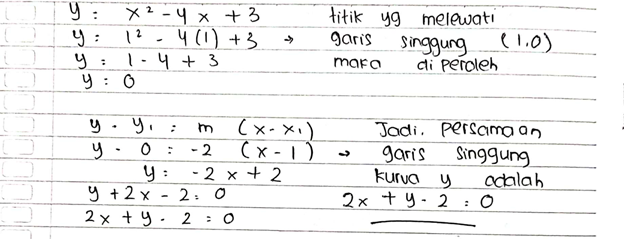 y : x² - 4x + 3 titik yg melewati
y : 1² - 4(1) + 3 → garis singgung (1,0)
y : 1 - 4 + 3 maka di peroleh
y : 0
y - y₁ : m (x - x₁) Jadi, persamaan
y - 0 : -2 (x - 1) → garis singgung
y : -2x + 2 kurva y adalah
y + 2x - 2 : 0 2x + y - 2 : 0
2x + y - 2 : 0